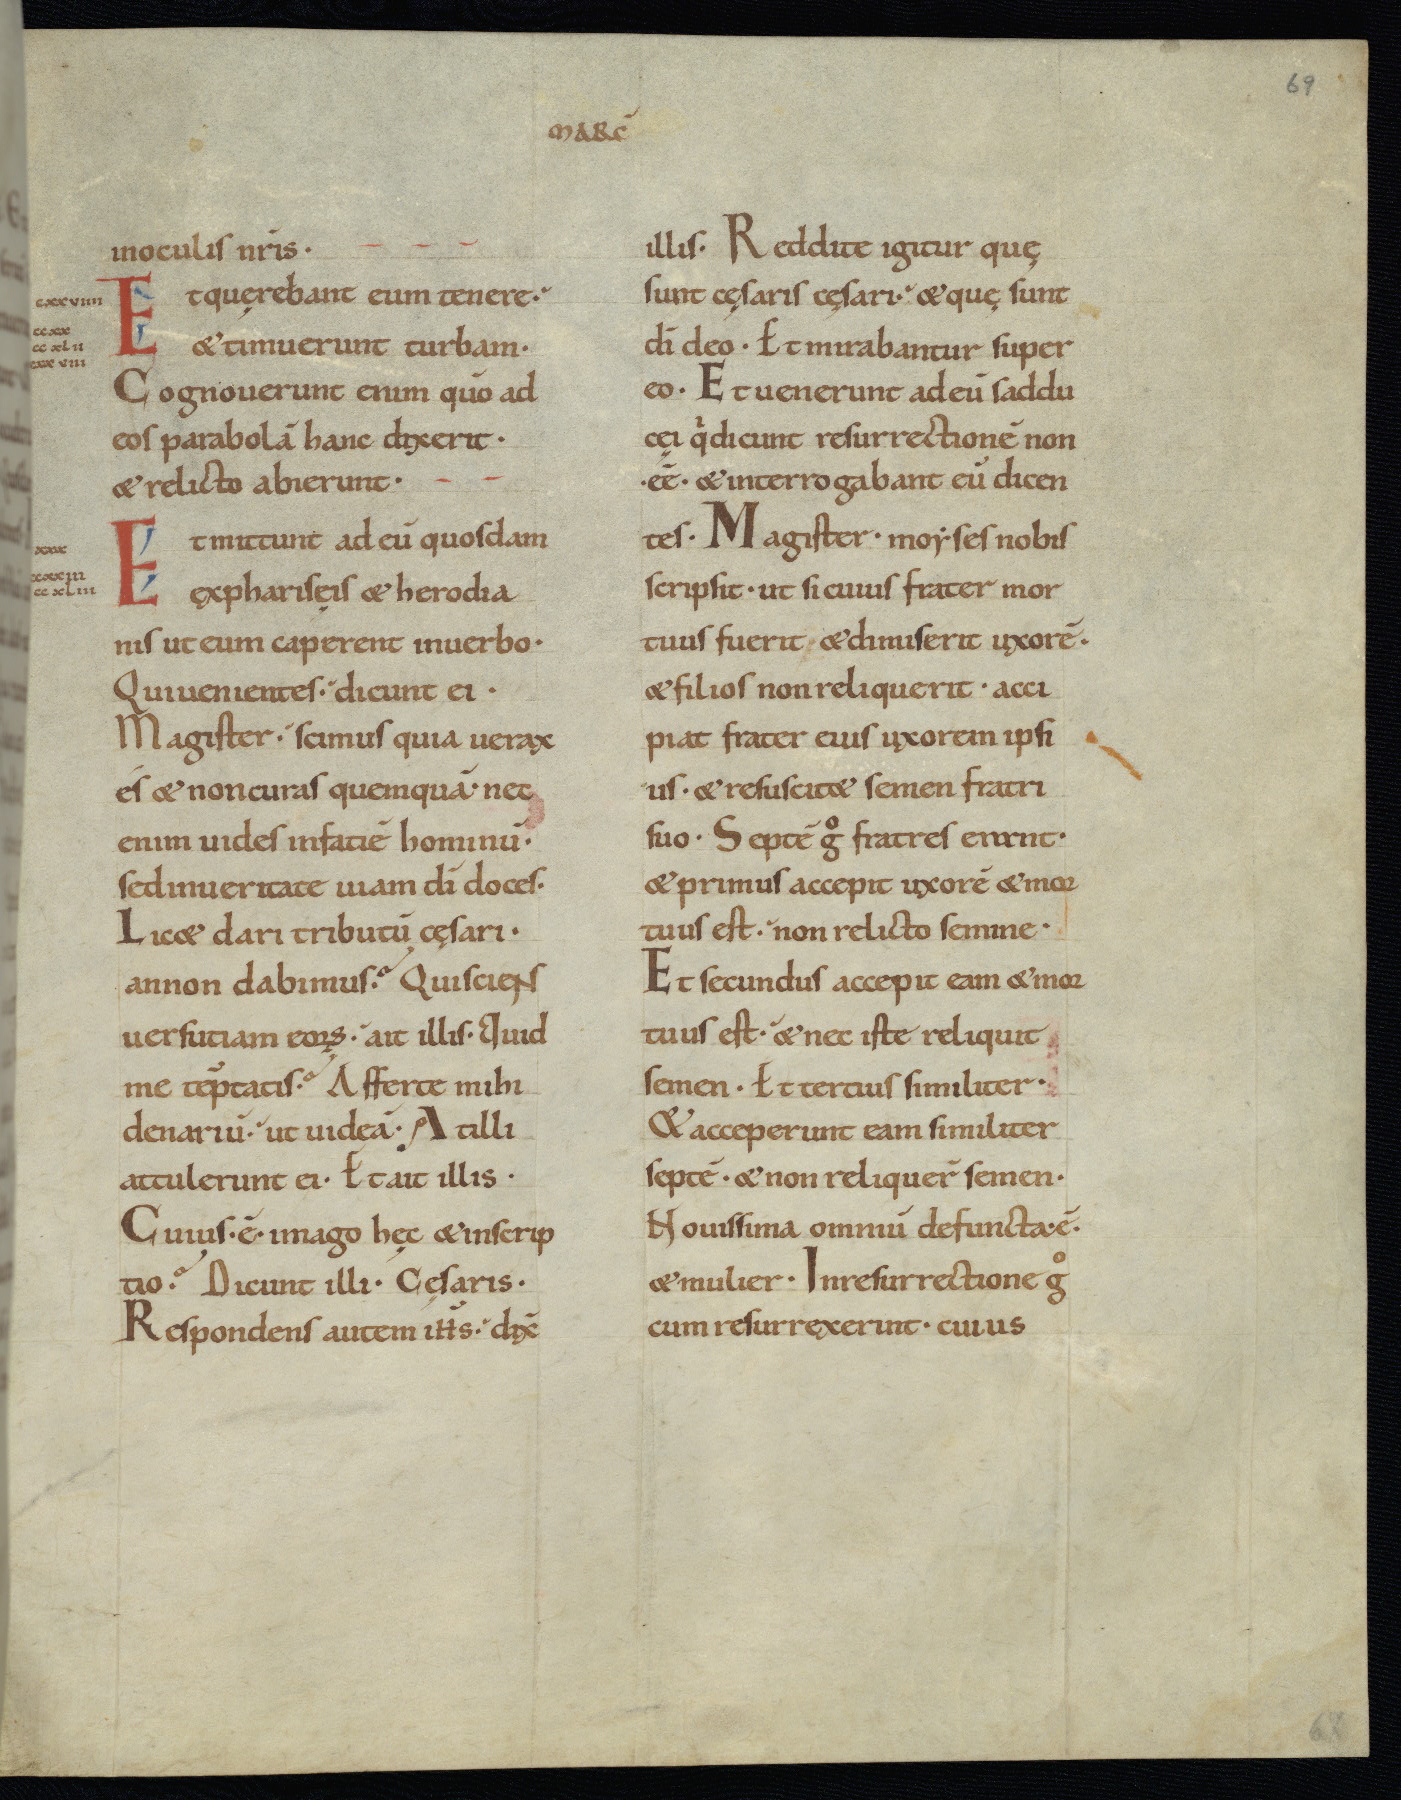 69
MARC̄
inoculis nr̄is ·
Et quęrebant eum tenere ·
& timuerunt turbam ·
cxxviiii
ccxx
ccxlii
cxxviii
Cognouerunt enim quō ad
eos parabolā hanc dixerit ·
& relicto abierunt ·
Et mittunt ad eū quosdam
ex pharisęis & herodia
cxxx
ccxxiii
ccxliii
nis ut eum caperent inuerbo ·
Qui uenientes · dicunt ei ·
Magister · scimus quia uerax
és & non curas quemquā · nec
enim uides infaciē hominū ·
sed inueritate uiam dī doces ·
Lic& dari tributū cęsari ·
an non dabimus · Qui sciens
uersutiam eoꝝ · ait illis · Quid
me tēptatis · Afferte mihi
denariū · ut uideā · At illi
attulerunt ei · Et ait illis ·
Cuius · ē · imago hęc & inscrip
tio · Dicunt illi · Cęsaris ·
Respondens autem ih̄s · dix̄
illis · Reddite igitur quę
sunt cęsaris cęsari · & quę sunt
dī deo · Et mirabantur super
eo · Et uenerunt ad eū saddu
cęi q̇dicunt resurrectionē non
· eē · & interrogabant eū dicen
tes · Magister · moyses nobis
scripsit · ut si cuius frater mor
tuus fuerit & dimiserit uxorē ·
& filios non reliquerit · acci
piat frater eius uxorem ipsi
us · & resuscit& semen fratri
suo · Septē gº fratres erant ·
& primus accepit uxorē & mor
tuus est · non relicto semine ·
Et secundus accepit eam & mor
tuus est · & nec iste reliquit
semen · Et tertius similiter ·
& acceperunt eam similiter
septē · & non reliquer̄ semen ·
Nouissima omniū defuncta · ē ·
& mulier · In resurrectione gº
cum resurrexerint · cuius